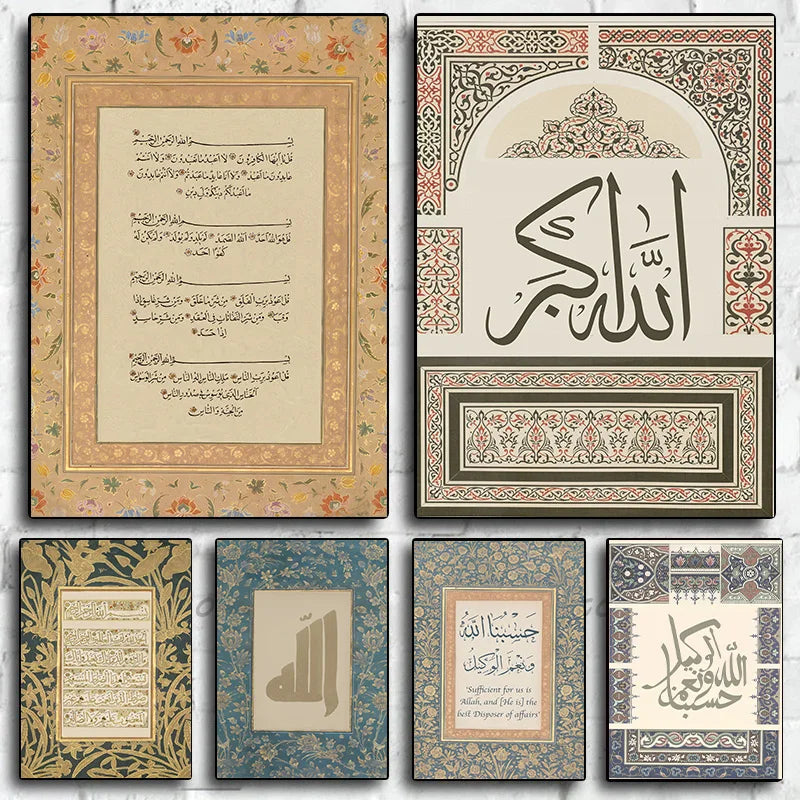 بسم الله الرحمن الرحيم
قل يا أيها الكافرون لا أعبد ما تعبدون ولا أنتم
عابدون ما أعبد ولا أنا عابد ما عبدتم ولا أنتم عابدون
ما أعبد لكم دينكم ولي دين
بسم الله الرحمن الرحيم
قل هو الله أحد الله الصمد لم يلد ولم يولد ولم يكن له
كفوا أحد
بسم الله الرحمن الرحيم
قل أعوذ برب الفلق من شر ما خلق ومن شر غاسق إذا
وقب ومن شر النفاثات في العقد ومن شر حاسد
إذا حسد
بسم الله الرحمن الرحيم
قل أعوذ برب الناس ملك الناس إله الناس من شر الوسواس
الخناس الذي يوسوس في صدور الناس
من الجنة والناس
الله أكبر
الله
حَسْبُنَا اللهُ
وَنِعْمَ الْوَكِيلُ
'Sufficient for us is
Allah, and [He is] the
best Disposer of affairs'
حسبنا الله ونعم الوكيل